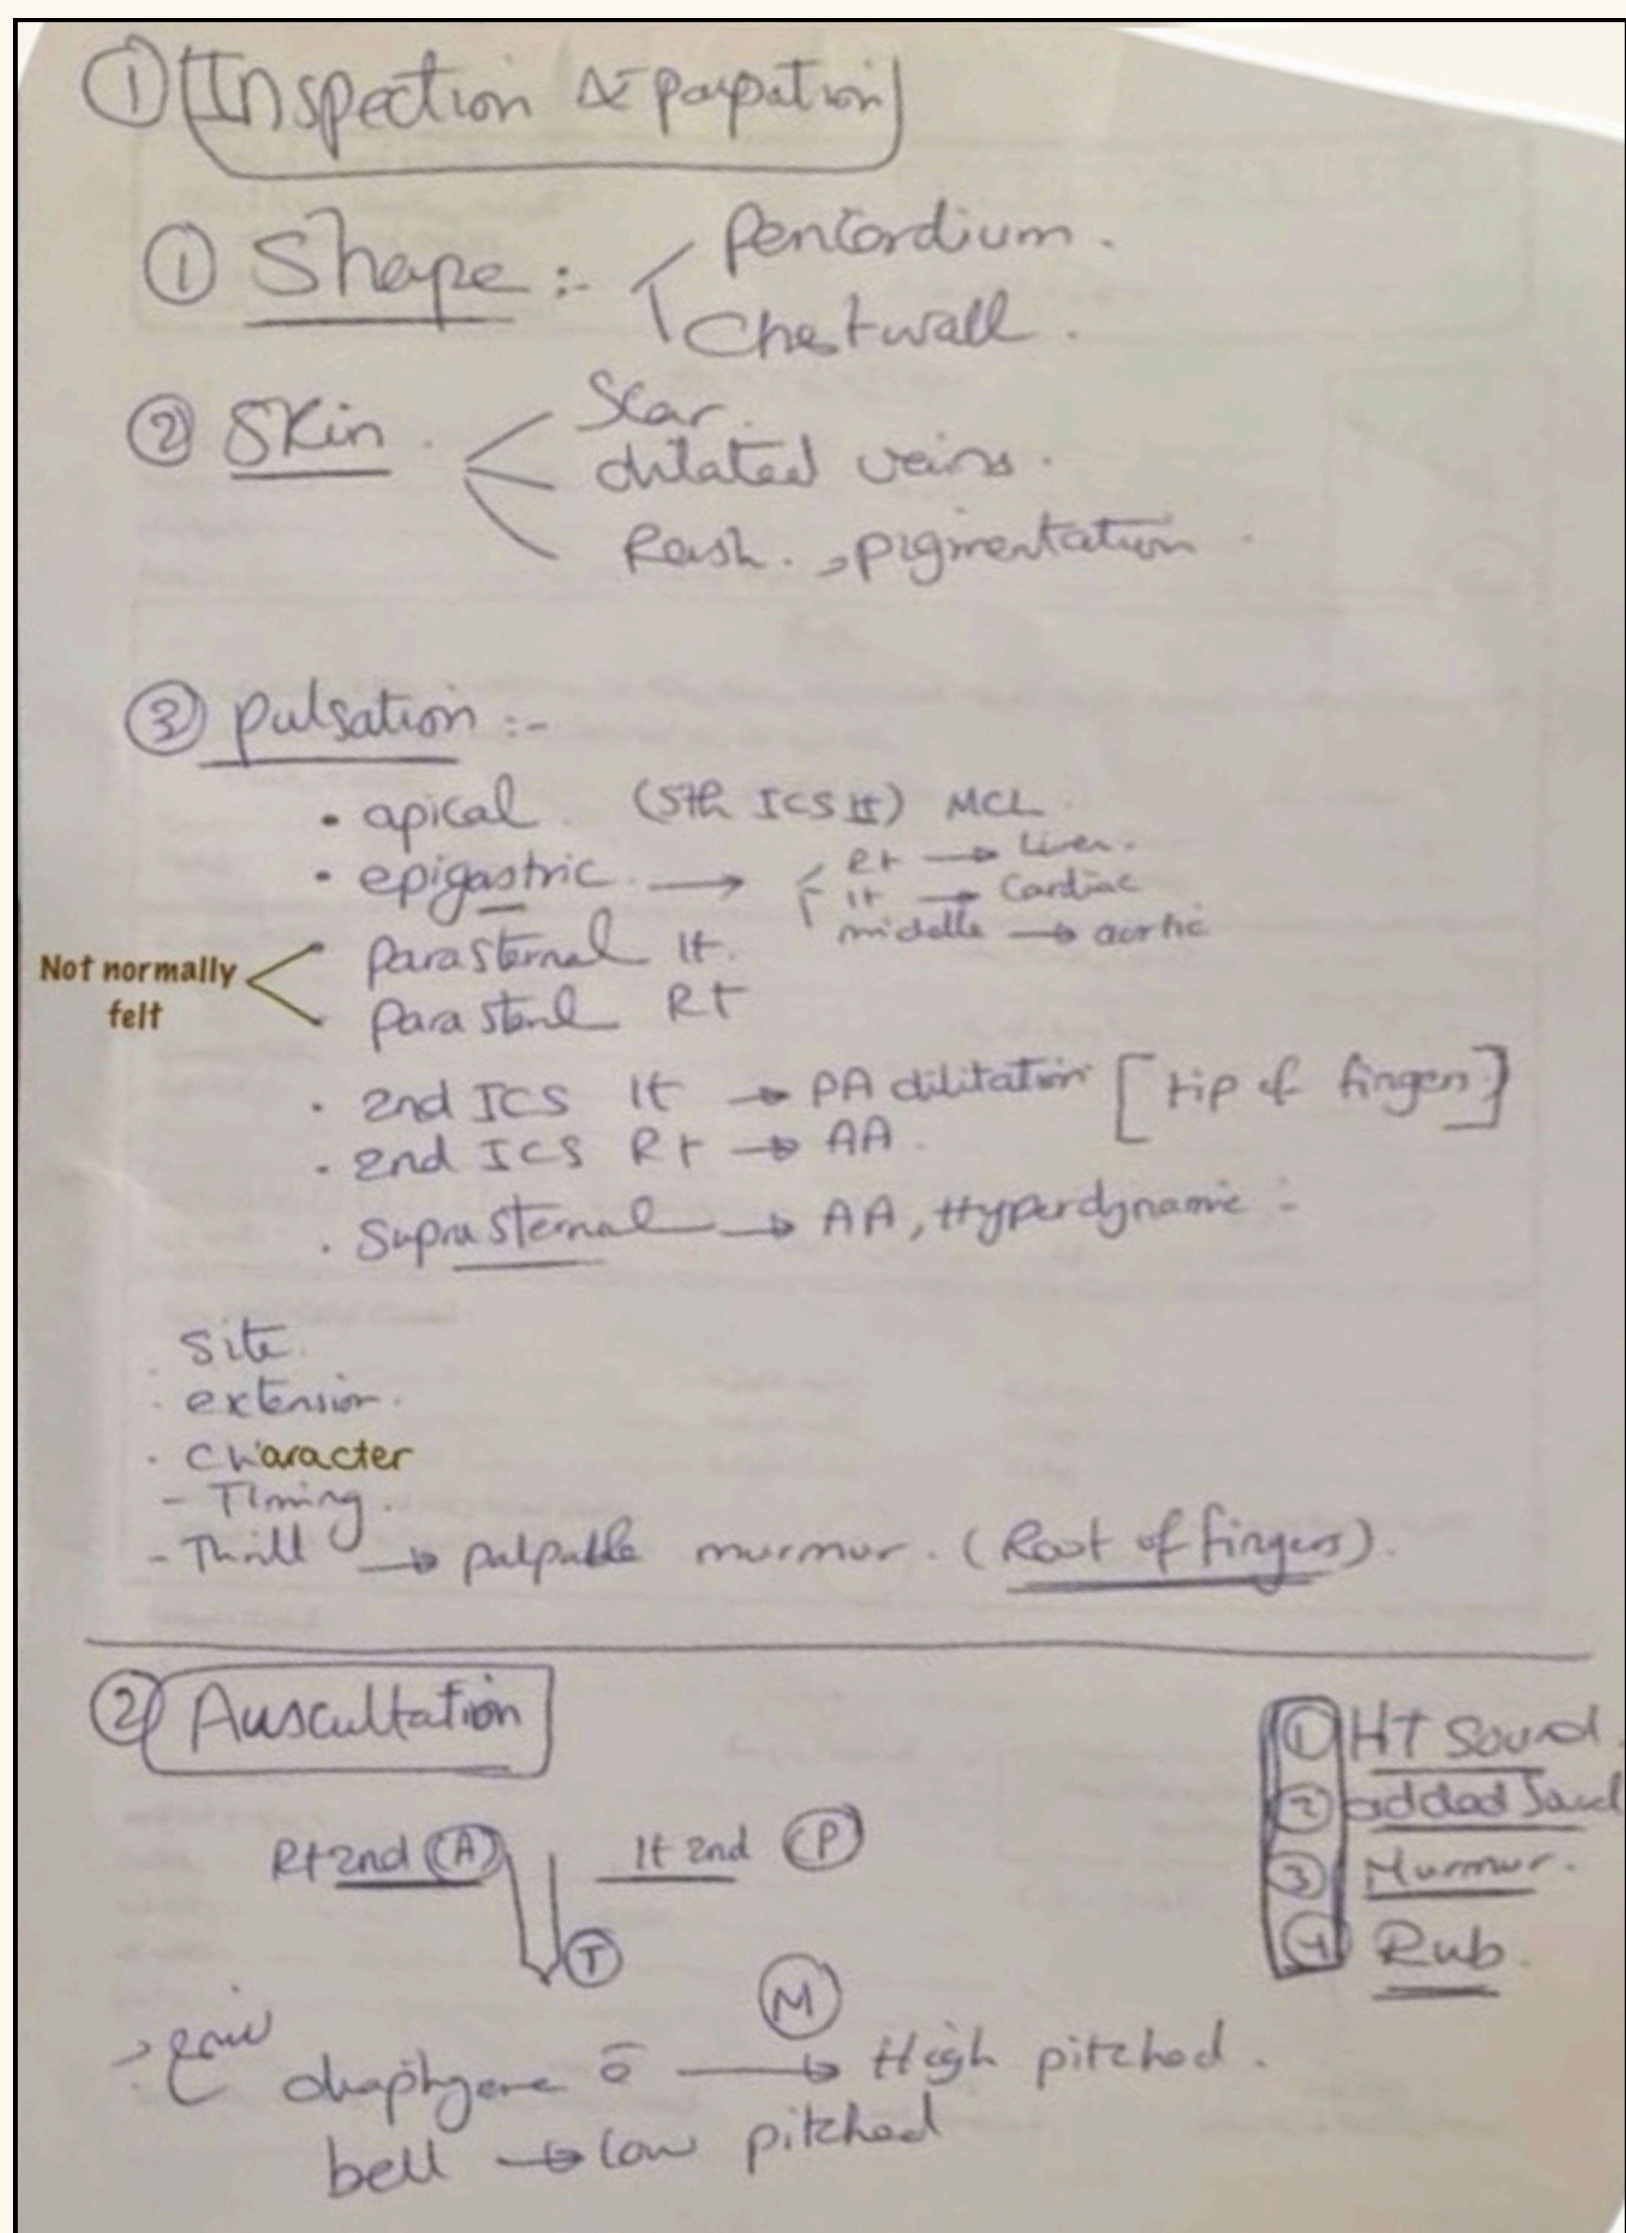 ① Inspection & palpation
① Shape :- Pericordium.
Chest wall.
② Skin. Scar.
dilated veins.
Rash. , pigmentation
③ pulsation :-
• apical. (5th ICS lt) MCL
• epigastric. → Rt → Liver.
lt → Cardiac
middle → aortic
Not normally felt
parasternal lt.
parasternal Rt
• 2nd ICS lt → PA dilitation [tip of fingers]
• 2nd ICS Rt → AA.
• Suprasternal → AA, Hyperdynamic
Site.
• extension.
• Character
- Timing.
- Thrill → palpable murmur. (Root of fingers).
② Auscultation
① HT Sound.
② added Sound
③ Murmur.
④ Rub.
Rt 2nd Ⓐ lt 2nd Ⓟ
Ⓣ
Ⓜ
→ High pitched.
bell → low pitched